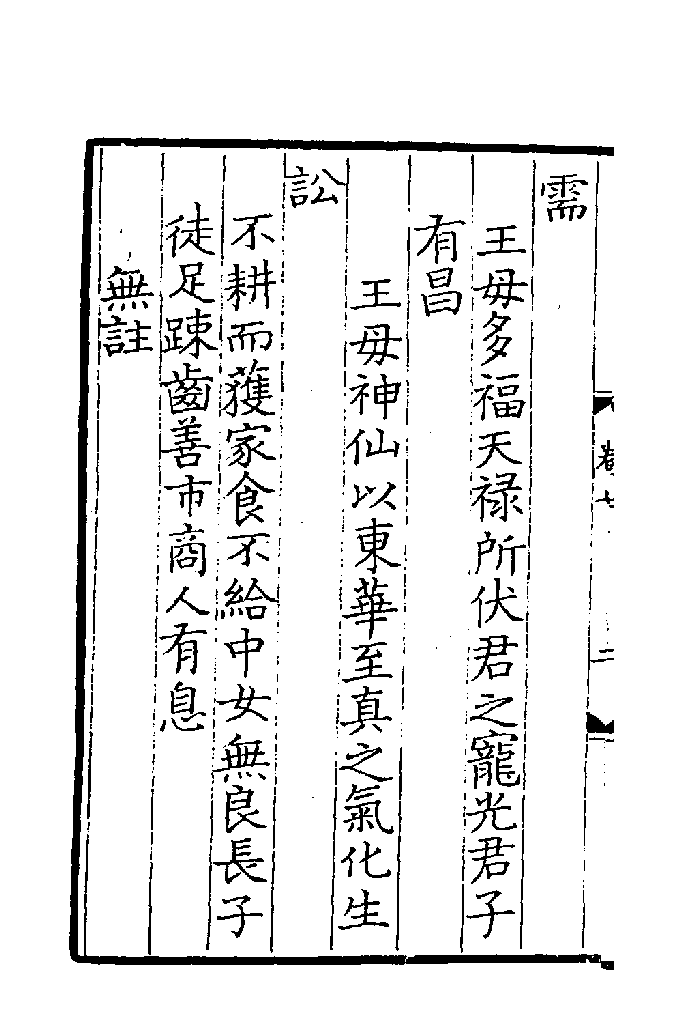 卷七
二
需
王毋多福天祿所伏君之寵光君子
有昌
王毋神仙以東華至真之氣化生
訟
不耕而獲家食不給中女無良長子
徒足踈齒善市商人有息
無註